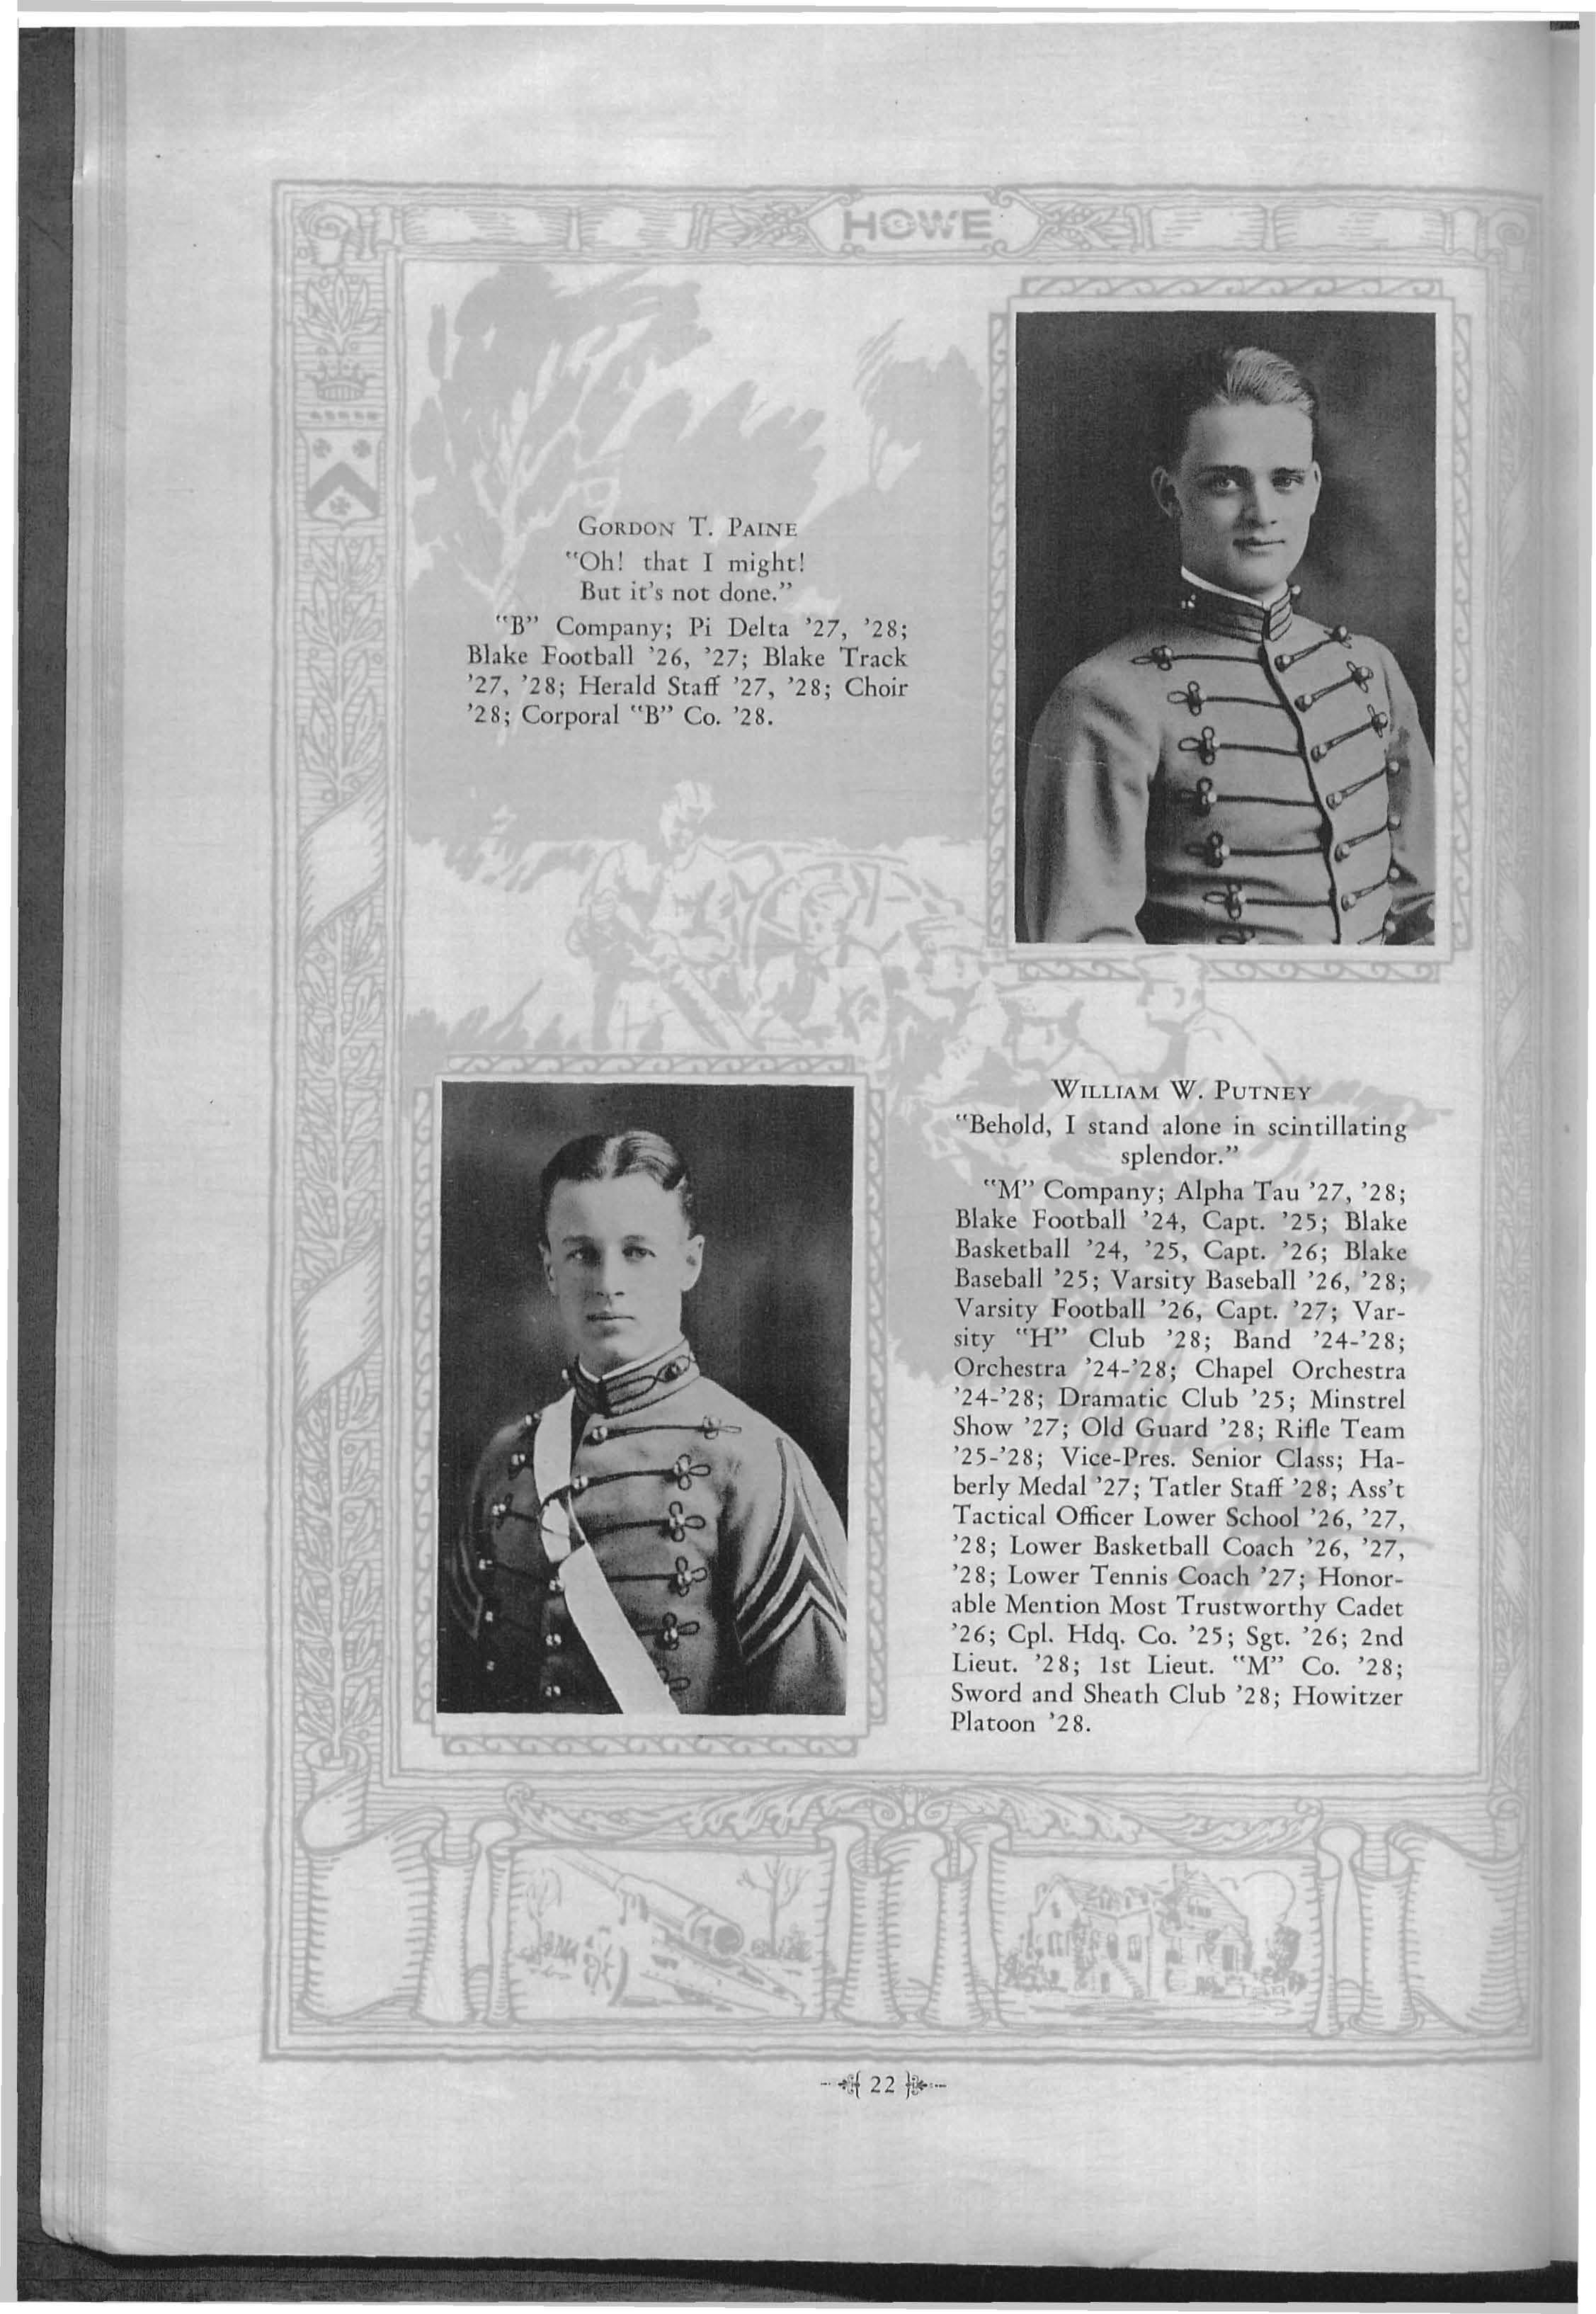 HOWE
GORDON T. PAINE
"Oh! that I might!
But it's not done."
"B" Company; Pi Delta '27, '28;
Blake Football '26, '27; Blake Track
'27, '28; Herald Staff '27, '28; Choir
'28; Corporal "B" Co. '28.
WILLIAM W. PUTNEY
"Behold, I stand alone in scintillating
splendor."
"M" Company; Alpha Tau '27, '28;
Blake Football '24, Capt. '25; Blake
Basketball '24, '25, Capt. '26; Blake
Baseball '25; Varsity Baseball '26, '28;
Varsity Football '26, Capt. '27; Var-
sity "H" Club '28; Band '24-'28;
Orchestra '24-'28; Chapel Orchestra
'24-'28; Dramatic Club '25; Minstrel
Show '27; Old Guard '28; Rifle Team
'25-'28; Vice-Pres. Senior Class; Ha-
berly Medal '27; Tatler Staff '28; Ass't
Tactical Officer Lower School '26, '27,
'28; Lower Basketball Coach '26, '27,
'28; Lower Tennis Coach '27; Honor-
able Mention Most Trustworthy Cadet
'26; Cpl. Hdq. Co. '25; Sgt. '26; 2nd
Lieut. '28; 1st Lieut. "M" Co. '28;
Sword and Sheath Club '28; Howitzer
Platoon '28.
22